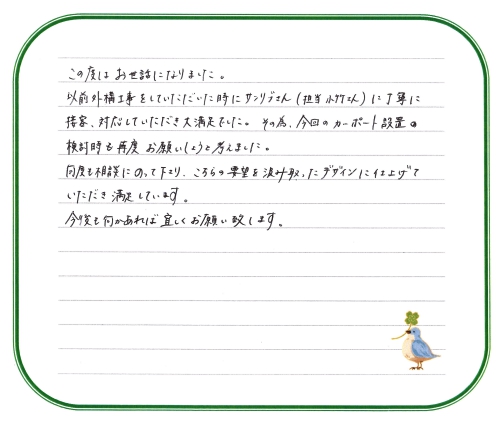 この度は お世話になりました。
以前外構工事をしていただいた時に サンリブさん (担当 小竹さん) に丁寧に
接客、対応していただき大満足でした。 その為、今回の カーポート設置の
検討時も再度 お願いしようと考えました。
何度も相談にのって下さり、こちらの要望を汲み取ったデザインに仕上げて
いただき 満足しています。
今後も何かあれば 宜しくお願い致します。